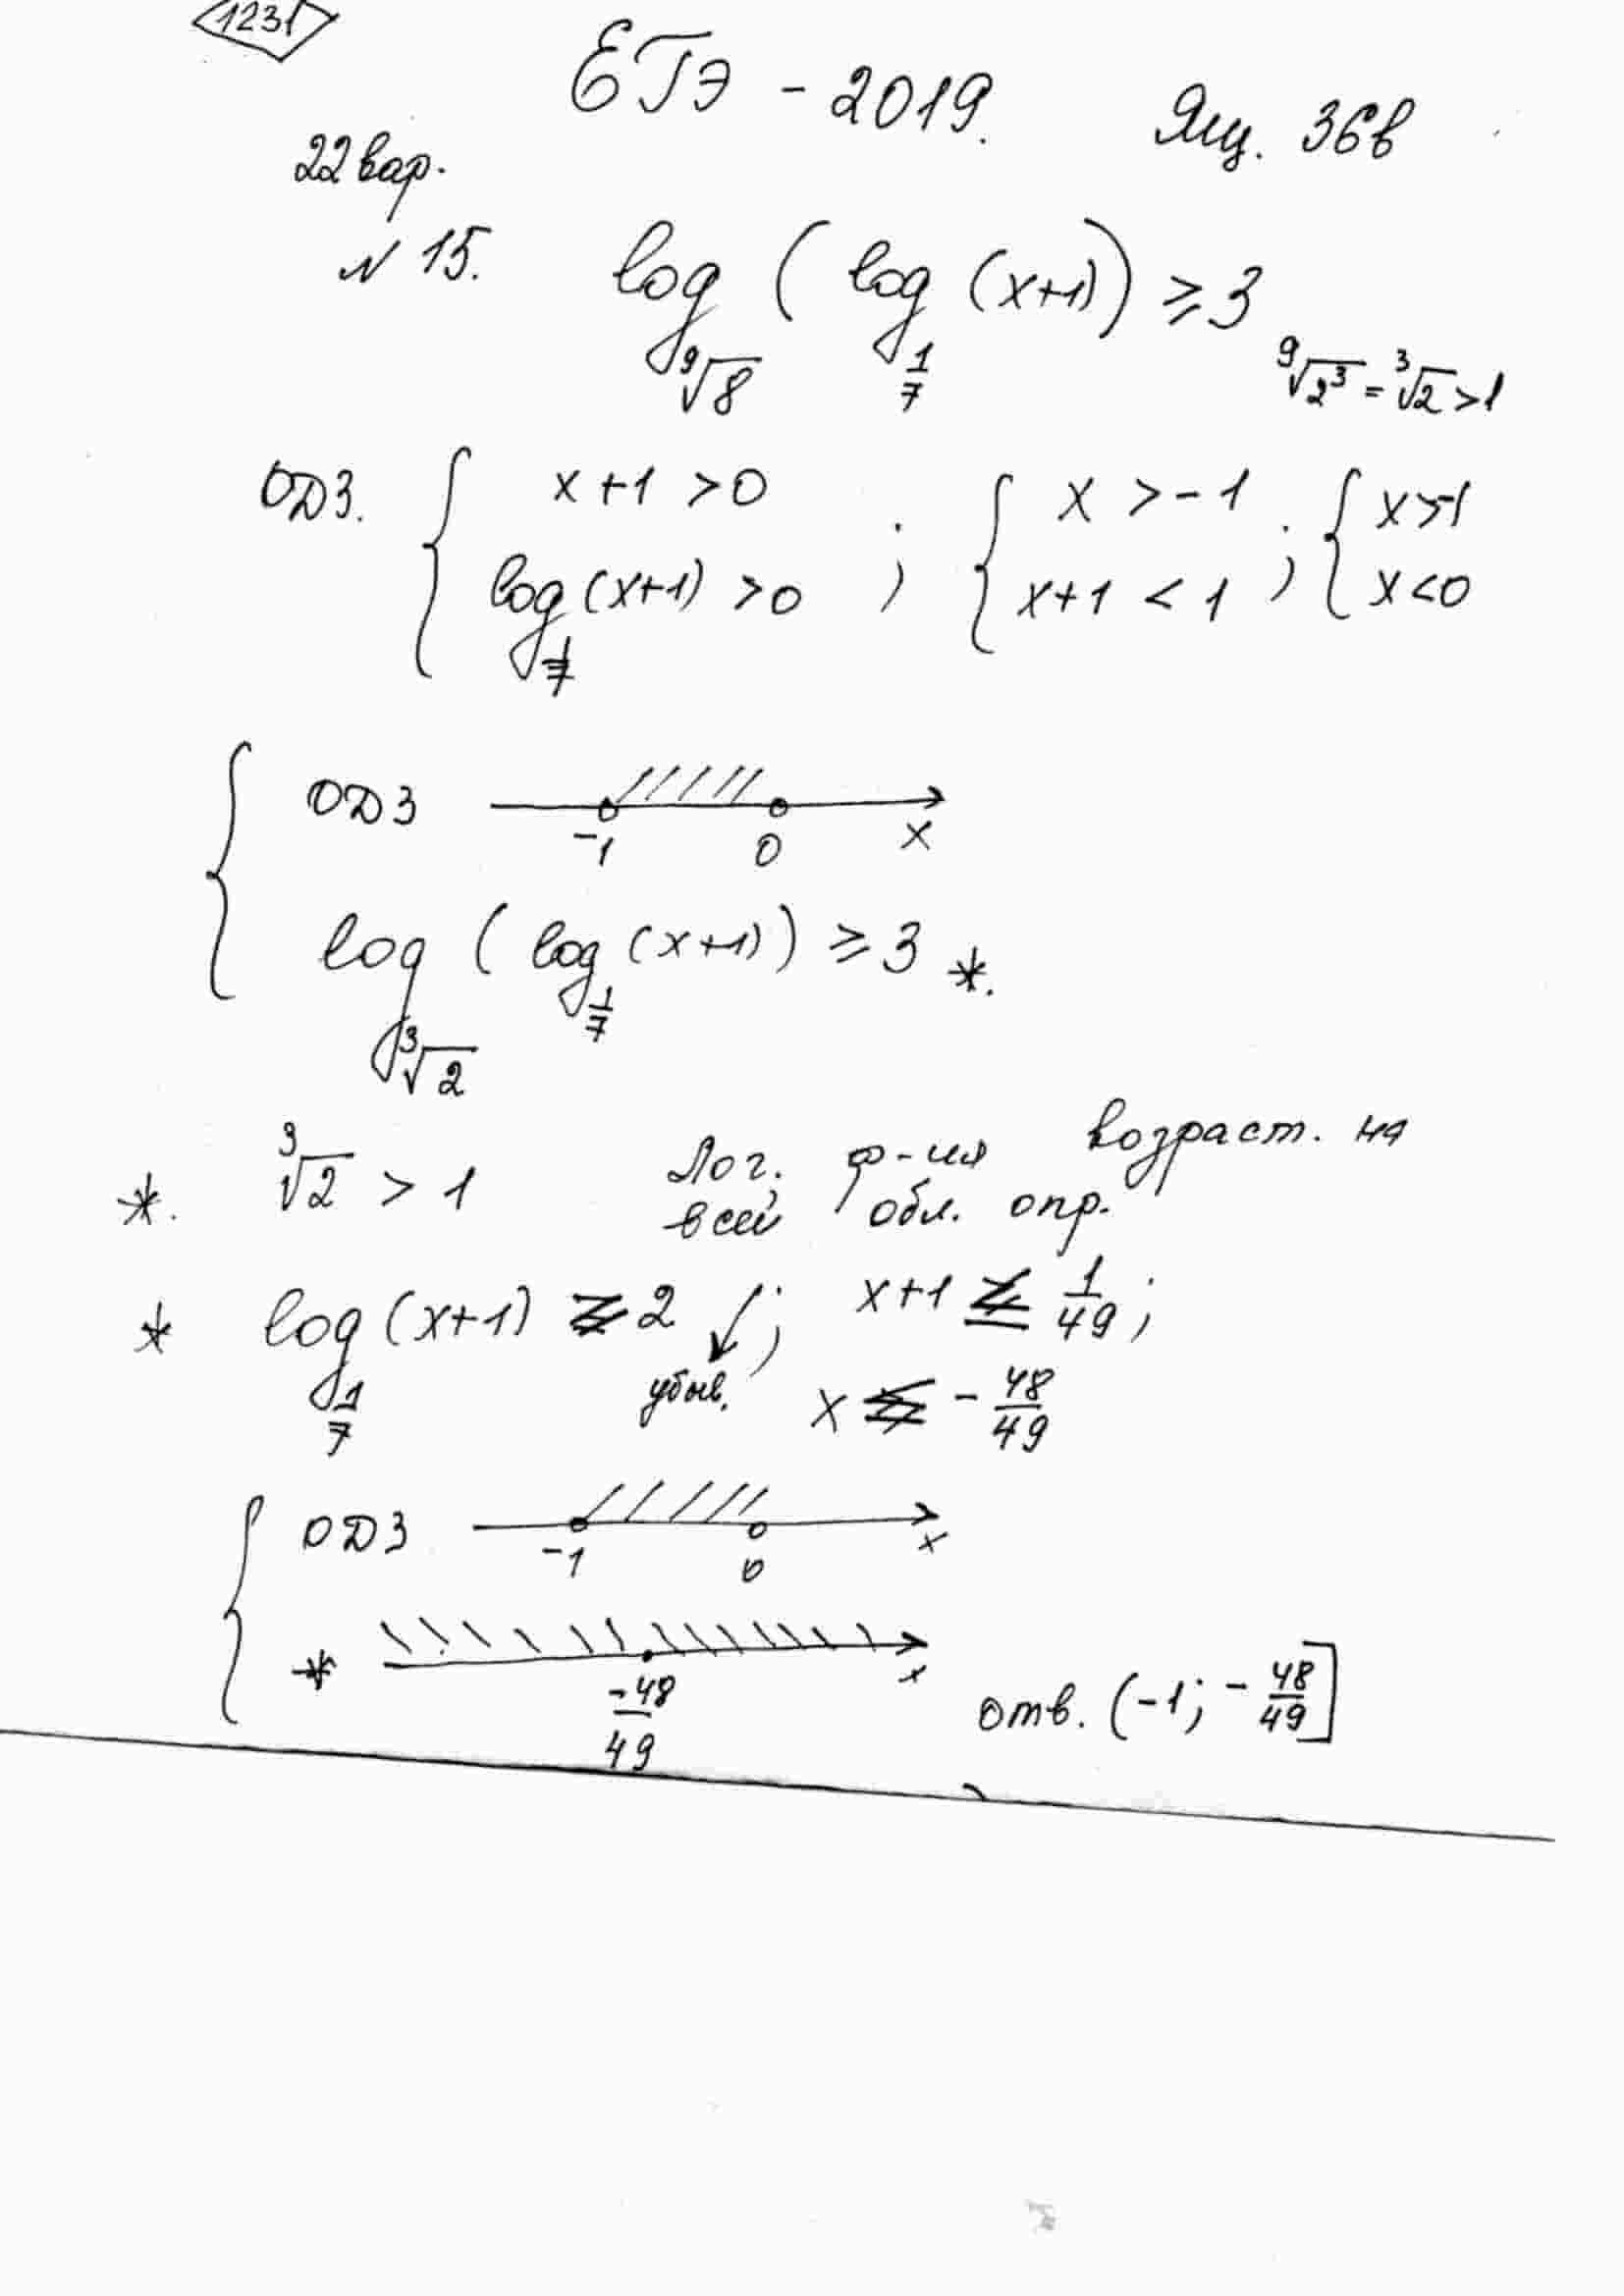 1231
ЕГЭ - 2019. Ящ. 36в
22вар.
N 15. log_{⁹√8} (log_{1/7} (x+1)) ≥ 3
⁹√2³ = ³√2 > 1
ОДЗ. { x+1 > 0 ; { x > -1 ; { x > -1
log_{1/7} (x+1) > 0 x+1 < 1 x < 0
{ ОДЗ -1 0 x
log_{³√2} (log_{1/7} (x+1)) ≥ 3 *.
*. ³√2 > 1 Лог. ф-ия возраст. на
всей обл. опр.
* log_{1/7} (x+1) ≥ 2 ↙; x+1 ≤ 1/49;
убыв. x ≤ - 48/49
{ ОДЗ -1 0 x
* -48/49 x отв. (-1; - 48/49]